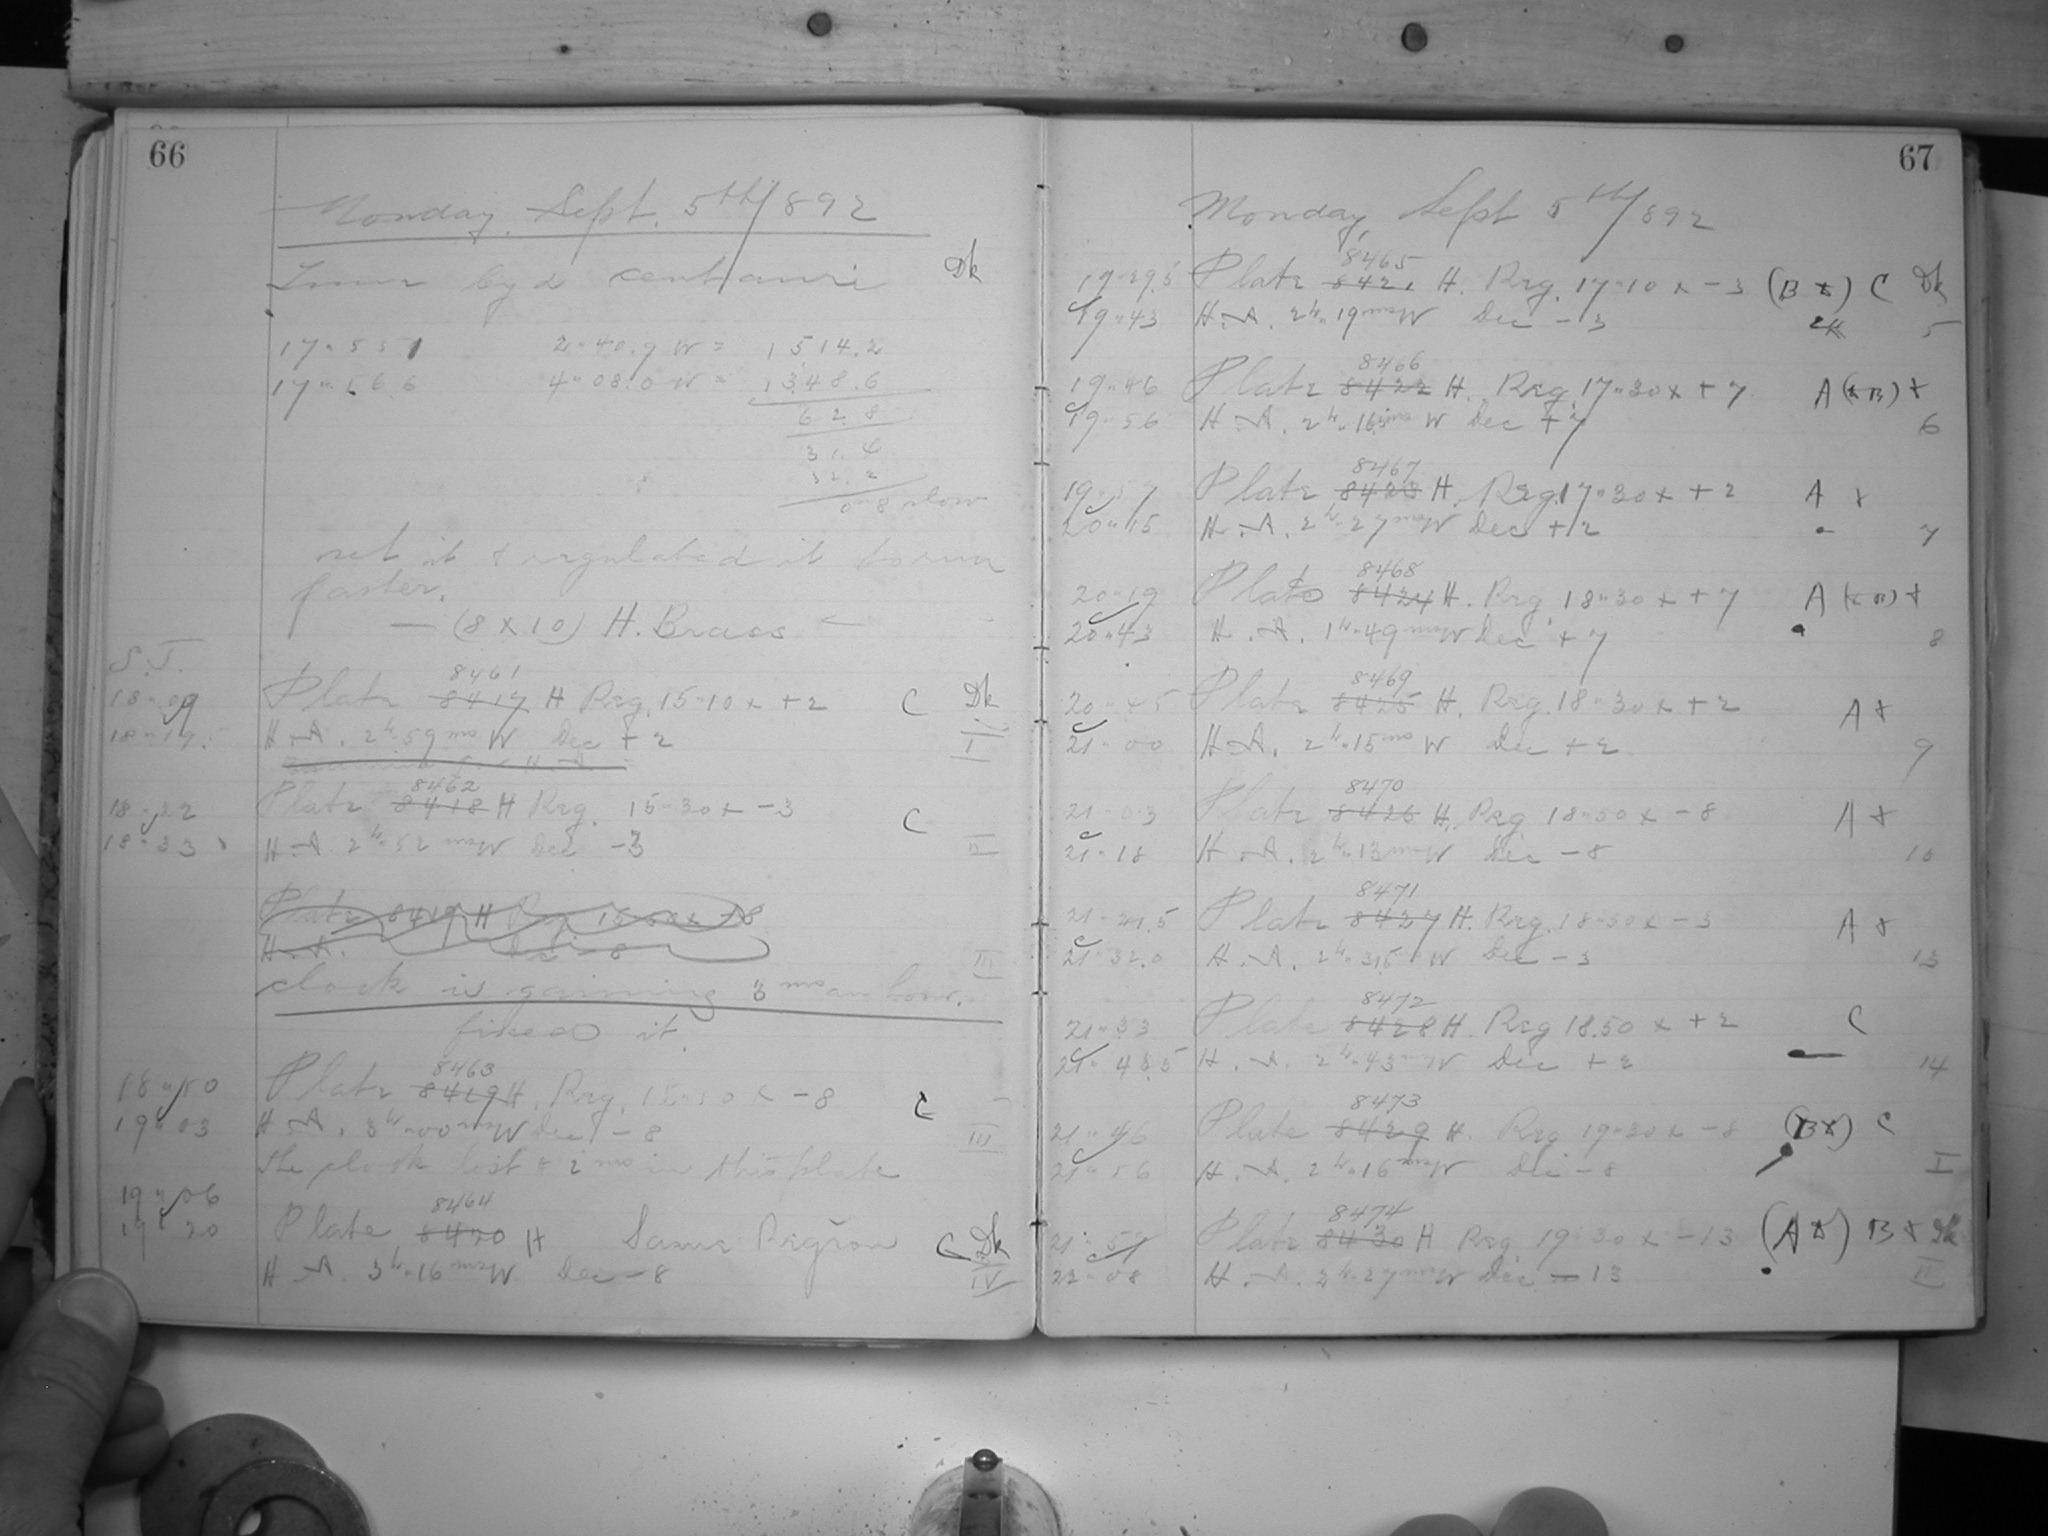 66
Monday, Sept. 5th/892
Time by α centauri Dk
17"55.1 2"40.9 W = 1514.2
17"56.6 4"08.0 W = 1348.6
62.8
31.4
32.2
0"8 slow
set it & regulated it to run
faster.
— (8 x 10) H. Brass —
S.T.
8461
18"09 Plate 8417 H Reg. 15"10 x +2 C Dk
18"19.5 H.A. 2h"59ms W Dec +2 I
8462
18"22 Plate 8418 H Reg. 15"30 x -3 C
18"33 H.A. 2h"52ms W Dec -3 II
Plate 8419 H Reg 15"50 x -8
H.A. Dec -8 III
clock is gaining 3ms an hour.
fixed it.
8463
18"50 Plate 8419 H. Reg. 15"50 x -8 C
19"03 H.A. 3h"00ms W Dec -8 III
the clock lost 2ms in this plate
19"06
8464
19"20 Plate 8420 H Same Region C Dk
H.A. 3h"16ms W Dec -8 IV
67
Monday, Sept 5th/892
8465
19"29.5 Plate 8421 H. Reg. 17"10 x -3 (B *) C Dk
19"43 H.A. 2h"19ms W Dec -3 5
8466
19"46 Plate 8422 H. Reg. 17"30 x +7 A (* B) *
19"56 H.A. 2h"16.5ms W Dec +7 6
8467
19"57 Plate 8423 H. Reg. 17"30 x +2 A *
20"15 H.A. 2h"27ms W Dec +2 7
8468
20"19 Plate 8424 H. Reg 18"30 x +7 A (* B) *
20"43 H.A. 1h"49ms W Dec +7 8
8469
20"45 Plate 8425 H. Reg. 18"30 x +2 A *
21"00 H.A. 2h"15ms W Dec +2 9
8470
21"03 Plate 8426 H. Reg 18"50 x -8 A *
21"18 H.A. 2h"13ms W Dec -8 10
8471
21"21.5 Plate 8427 H. Reg. 18"50 x -3 A *
21"32.0 H.A. 2h"31.5 W Dec -3 13
8472
21"33 Plate 8428 H. Reg 18.50 x +2 C
21"43.5 H.A. 2h"43ms W Dec +2 14
8473
21"46 Plate 8429 H. Reg 19"30 x -8 (B*) C
21"56 H.A. 2h"16ms W Dec -8 I
8474
21"59 Plate 8430 H Reg. 19"30 x -13 (A *) B * Dk
22"08 H.A. 2h"27ms W Dec -13 II